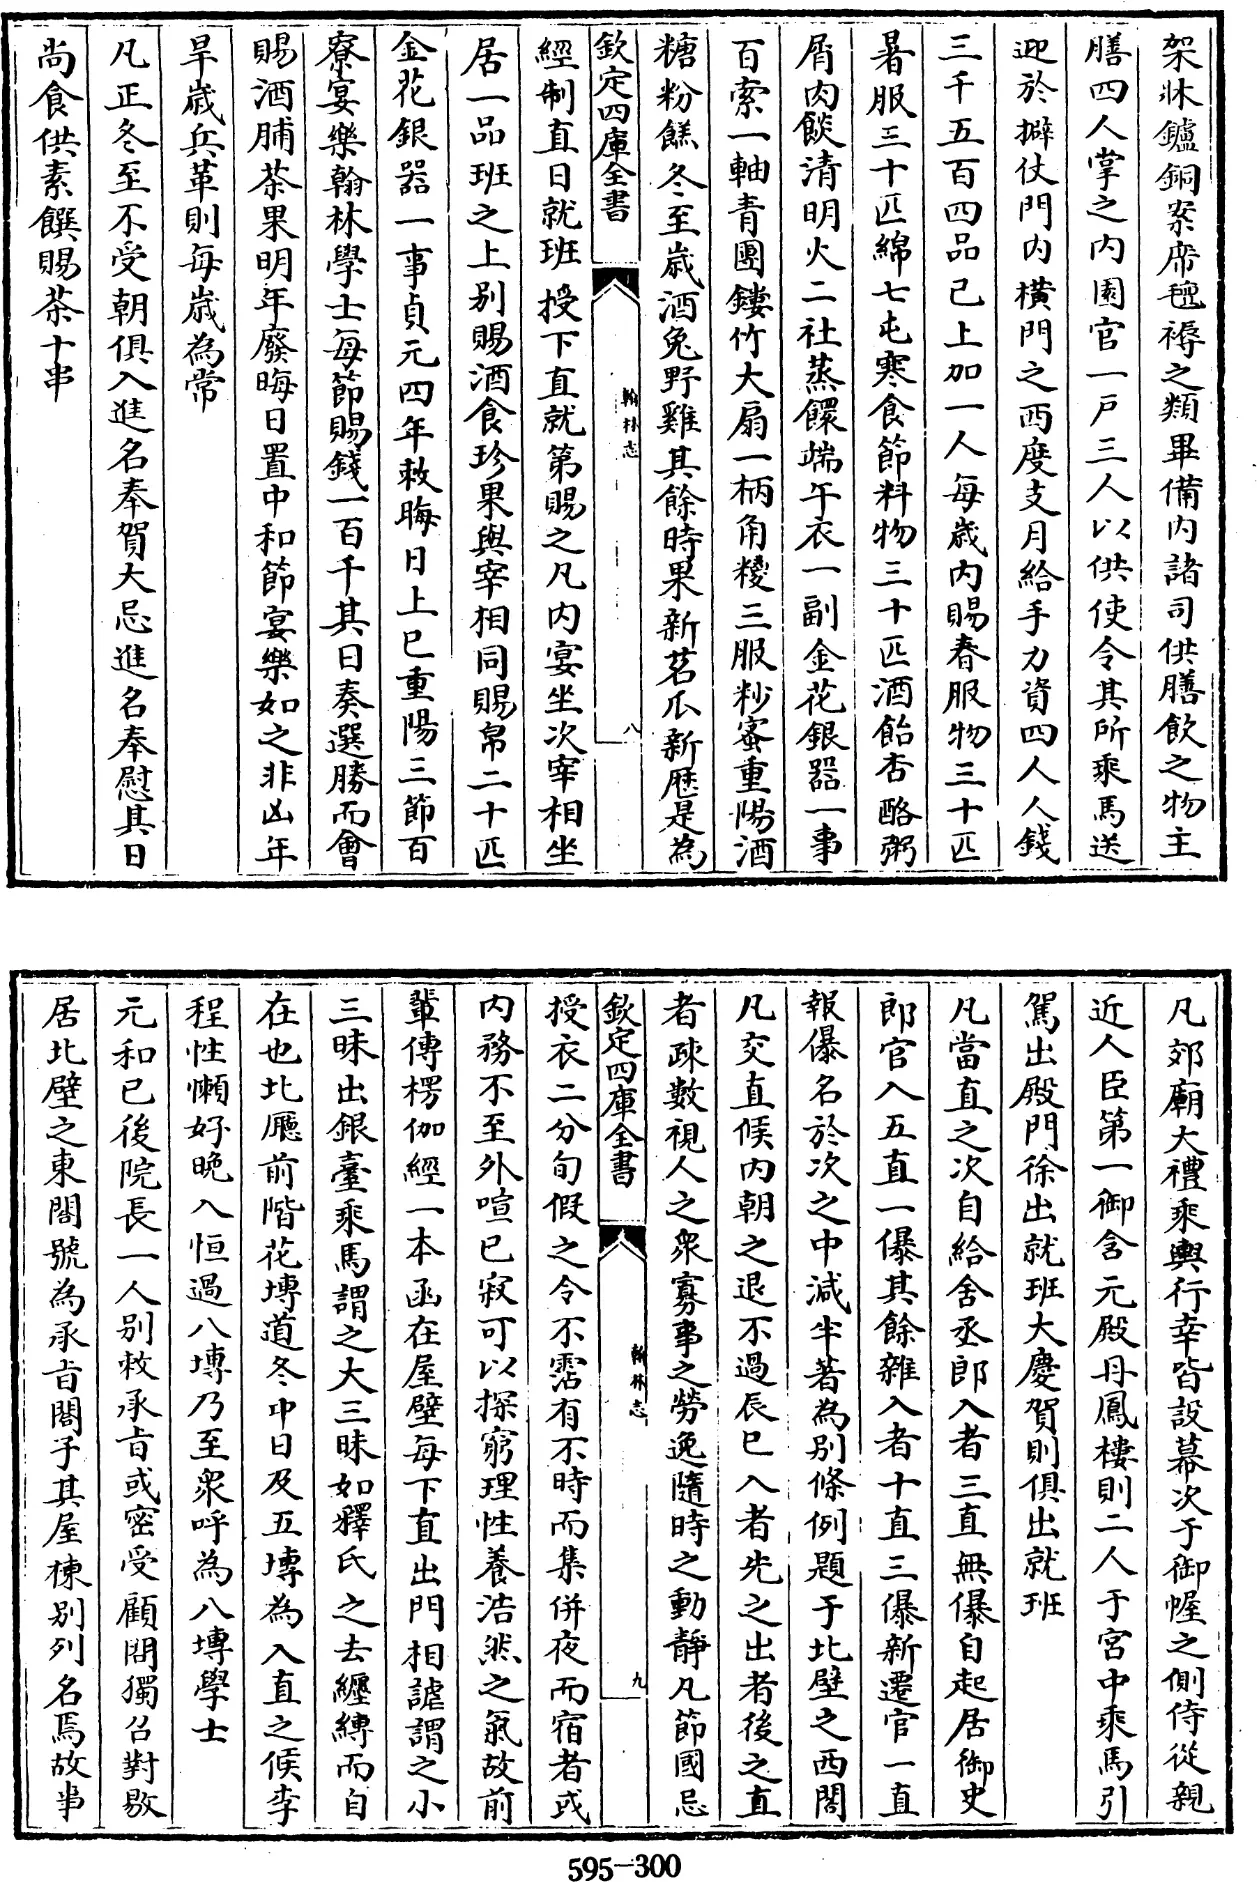 架牀鑪銅案席氊褥之類畢備内諸司供膳飲之物主
膳四人掌之内園官一戸三人以供使令其所乘馬送
迎於擗仗門内横門之西度支月給手力資四人人錢
三千五百四品已上加一人每歳内賜春服物三十匹
暑服三十匹綿七屯寒食節料物三十匹酒飴杏酪粥
屑肉餤清明火二社蒸䭔端午衣一副金花銀器一事
百索一軸青團鏤竹大扇一柄角糉三服粆蜜重陽酒
糖粉餻冬至歳酒兔野雞其餘時果新茗瓜新厯是為
欽定四庫全書
翰林志
八
經制直日就班授下直就第賜之凡内宴坐次宰相坐
居一品班之上别賜酒食珍果與宰相同賜帛二十匹
金花銀器一事貞元四年敕晦日上巳重陽三節百
寮宴樂翰林學士每節賜錢一百千其日奏選勝而會
賜酒脯茶果明年廢晦日置中和節宴樂如之非凶年
旱歳兵革則每歳為常
凡正冬至不受朝俱入進名奉賀大忌進名奉慰其日
尚食供素饌賜茶十串
凡郊廟大禮乘輿行幸皆設幕次于御幄之側侍從親
近人臣第一御含元殿丹鳳樓則二人于宫中乘馬引
駕出殿門徐出就班大慶賀則俱出就班
凡當直之次自給舍丞郎入者三直無㬥自起居御史
郎官入五直一㬥其餘雜入者十直三㬥新遷官一直
報㬥名於次之中減半著為别條例題于北壁之西閤
凡交直候内朝之退不過辰巳入者先之出者後之直
者疎數視人之衆寡事之勞逸隨時之動靜凡節國忌
欽定四庫全書
翰林志
九
授衣二分旬假之令不霑有不時而集併夜而宿者或
内務不至外喧已寂可以探窮理性養浩然之氣故前
輩傳楞伽經一本函在屋壁每下直出門相謔謂之小
三昧出銀臺乘馬謂之大三昧如釋氏之去纒縛而自
在也北廳前階花塼道冬中日及五塼為入直之候李
程性懶好晩入恒過八塼乃至衆呼為八塼學士
元和已後院長一人别敕承旨或密受顧問獨召對敭
居北壁之東閤號為承旨閤子其屋棟别列名焉故事
595-300